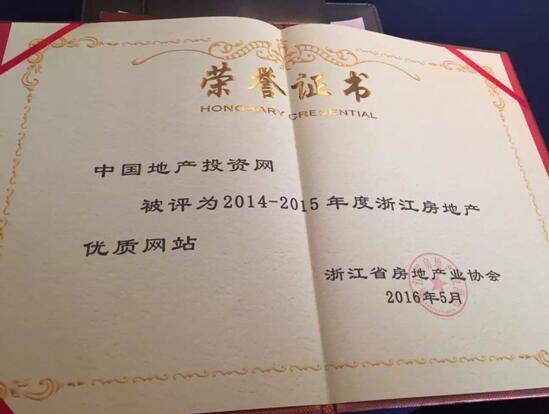 荣誉证书
HONORARY CREDENTIAL
中国地产投资网
被评为2014-2015年度浙江房地产
优质网站
浙江省房地产业协会
2016年5月